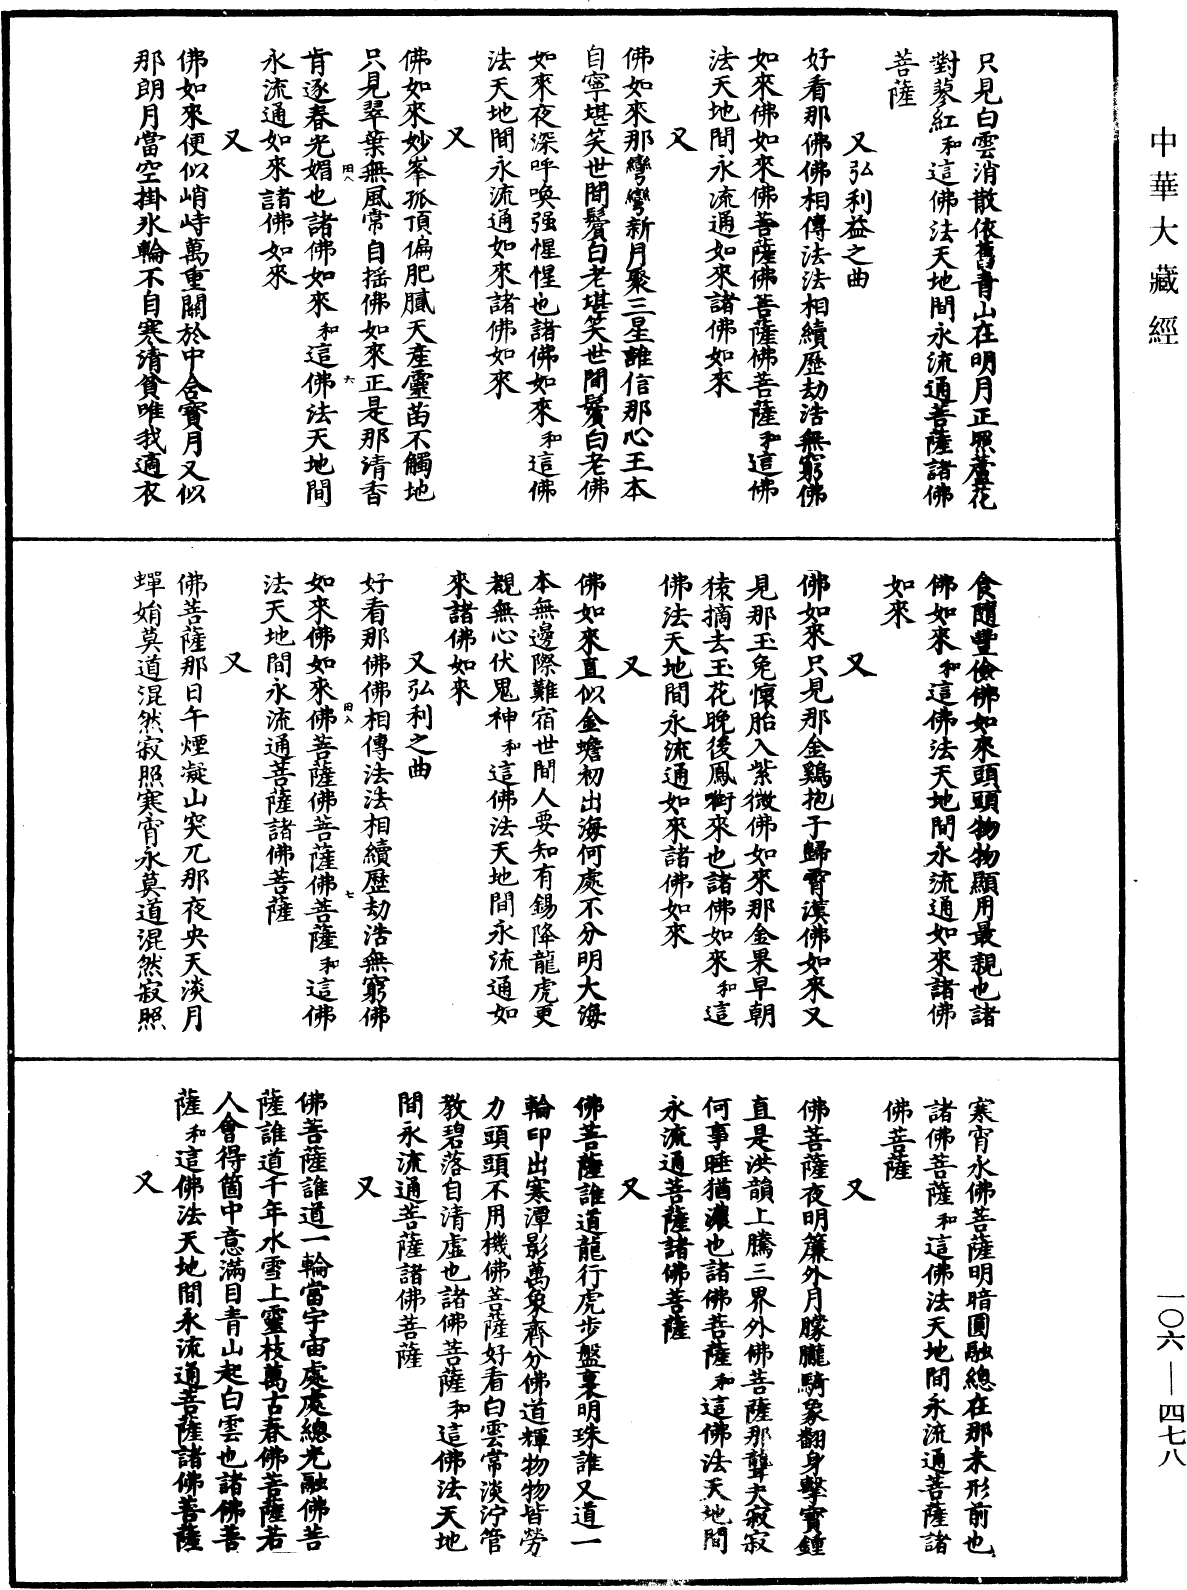 中華大藏經
只見白雲消散依舊青山在明月正照蘆花
對蓼紅和這佛法天地間永流通菩薩諸佛
菩薩
又弘利益之曲
好看那佛佛相傳法法相續歷劫浩無窮佛
如來佛如來佛菩薩佛菩薩佛菩薩和這佛
法天地間永流通如來諸佛如來
又
佛如來那彎彎新月聚三星誰信那心王本
自寧堪笑世間鬢白老堪笑世間鬢白老佛
如來夜深呼喚强惺惺也諸佛如來和這佛
法天地間永流通如來諸佛如來
又
佛如來妙峯孤頂偏肥膩天產靈苗不觸地
只見翠葉無風常自搖佛如來正是那清香
肯逐春光媚也諸佛如來和這佛法天地間
永流通如來諸佛如來
又
佛如來便似峭峙萬重關於中含寶月又似
那朗月當空掛氷輪不自寒清貧唯我適衣
田八
六
食隨豐儉佛如來頭頭物物顯用最親也諸
佛如來和這佛法天地間永流通如來諸佛
如來
又
佛如來只見那金鷄抱子歸霄漢佛如來又
見那玉兔懷胎入紫微佛如來那金果早朝
猿摘去玉花晚後鳳銜來也諸佛如來和這
佛法天地間永流通如來諸佛如來
又
佛如來直似金蟾初出海何處不分明大海
本無邊際難宿世間人要知有錫降龍虎更
覩無心伏鬼神和這佛法天地間永流通如
來諸佛如來
又弘利之曲
好看那佛佛相傳法法相續歷劫浩無窮佛
如來佛如來佛菩薩佛菩薩佛菩薩和這佛
法天地間永流通菩薩諸佛菩薩
又
佛菩薩那日午煙凝山突兀那夜央天淡月
蟬娟莫道混然寂照寒宵永莫道混然寂照
田八
七
寒宵永佛菩薩明暗圓融總在那未形前也
諸佛菩薩和這佛法天地間永流通菩薩諸
佛菩薩
又
佛菩薩夜明簾外月朦朧騎象翻身擊寶鍾
直是洪韻上騰三界外佛菩薩那聾夫寂寂
何事睡猶濃也諸佛菩薩和這佛法天地間
永流通菩薩諸佛菩薩
又
佛菩薩誰道龍行虎步盤裏明珠誰又道一
輪印出寒潭影萬象齊分佛道輝物物皆勞
力頭頭不用機佛菩薩好看白雲常淡泞管
教碧落自清虛也諸佛菩薩和這佛法天地
間永流通菩薩諸佛菩薩
又
佛菩薩誰道一輪當宇宙處處總光融佛菩
薩誰道千年水雪上靈枝萬古春佛菩薩若
人會得箇中意滿目青山起白雲也諸佛菩
薩和這佛法天地間永流通菩薩諸佛菩薩
又
一〇六—四七八